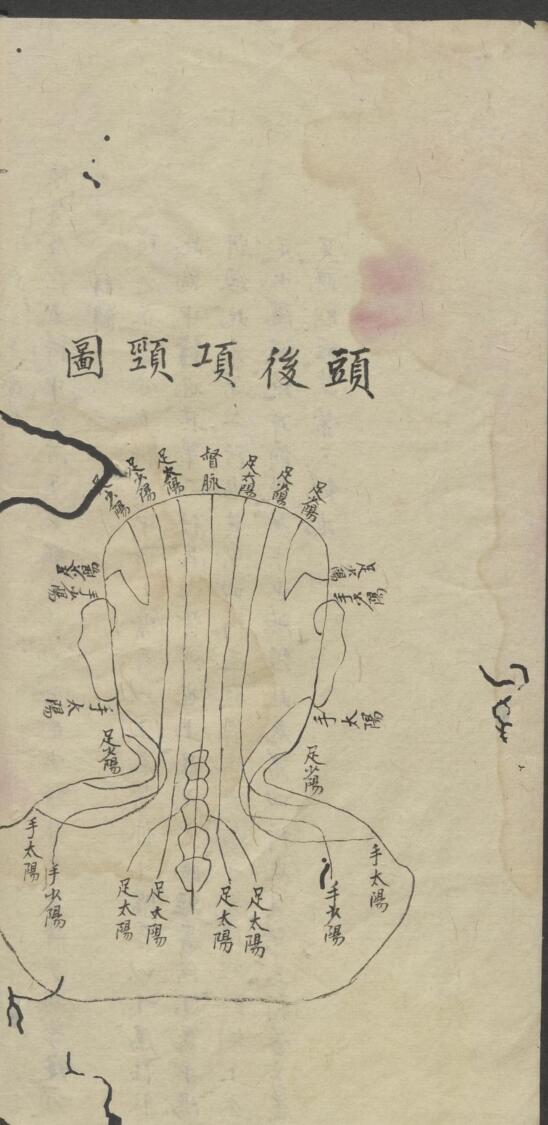 頭後項頸圖
足少陽
足少陽
足太陽
督脉
足太陽
足少陽
足少陽
足少陽
手少陽
手太陽
足少陽
足少陽
手少陽
手太陽
足少陽
足少陽
手太陽
手少陽
足太陽
足太陽
足太陽
足太陽
手少陽
手太陽